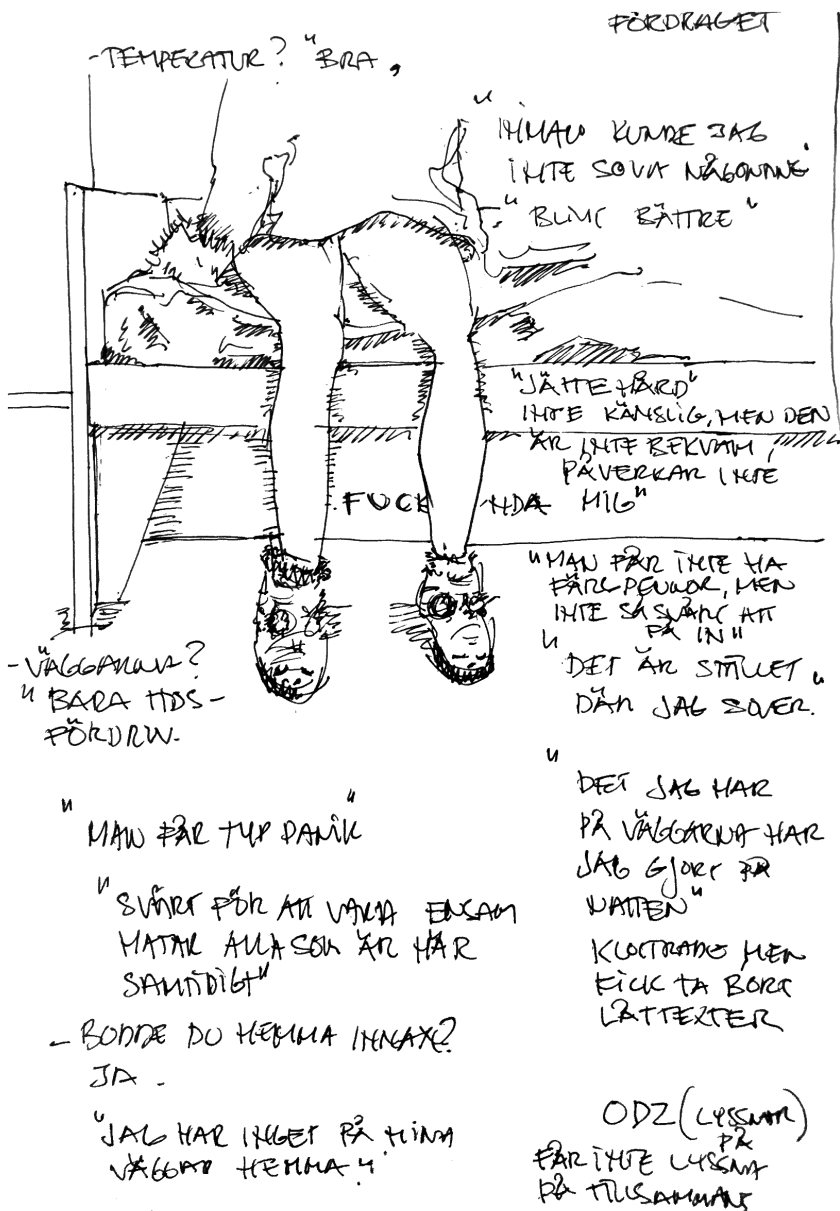 FÖRDRAGET
- TEMPERATUR? "BRA,
"INNAN KUNDE JAG
INTE SOVA NÅGONTING.
"BLIVIT BÄTTRE"
"JÄTTEHÅRD"
INTE KÄNSLIG, MEN DEN
ÄR INTE BEKVÄM,
PÅVERKAR INTE
MIG"
FUCK
"MAN FÅR INTE HA
FÄRGPENNOR, MEN
INTE SÅ SVÅRT ATT
FÅ IN"
"DET ÄR STÄLLET
DÄR JAG SOVER."
- VÄGGARNA?
"BARA TIDS-
FÖRDRIV.
"DET JAG HAR
PÅ VÄGGARNA HAR
JAG GJORT PÅ
NATTEN"
KLOTTRADE MEN
FICK TA BORT
LÅTTEXTER
"MAN FÅR TYP PANIK"
"SVÅRT FÖR ATT VARA ENSAM
HATAR ALLA SOM ÄR HÄR
SAMTIDIGT"
- BODDE DU HEMMA INNAN?
JA -
"JAG HAR INGET PÅ MINA
VÄGGAR HEMMA".
ODZ (LYSSNAR)
PÅ
FÅR INTE LYSSNA
PÅ TILLSAMMANS